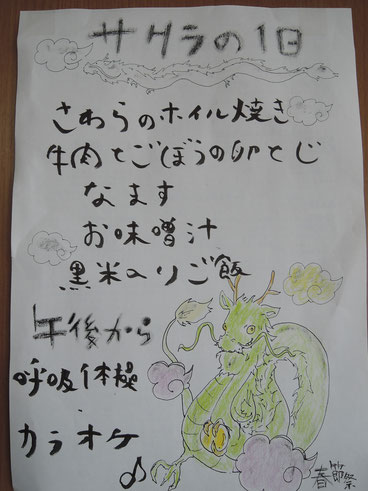 サクラの1日
さわらのホイル焼き
牛肉とごぼうの卵とじ
なます
お味噌汁
黒米入りご飯
午後から
呼吸体操
カラオケ